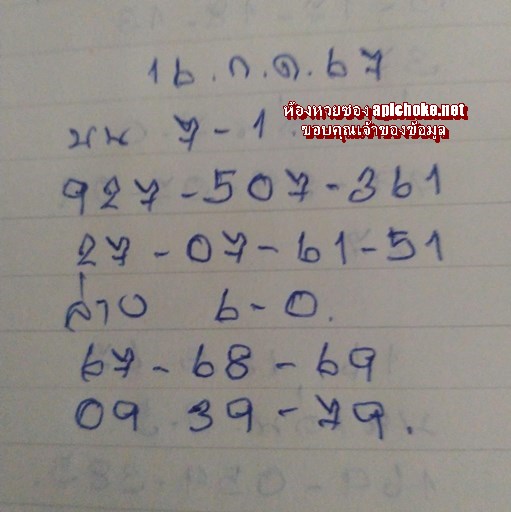 16.ก.ค.67
ห้องหวยซอง apichoke.net
ขอบคุณเจ้าของข้อมูล
บน 7-1
927-507-361
27-07-61-51
ล่าง 6-0.
67-68-69
09 39-79.